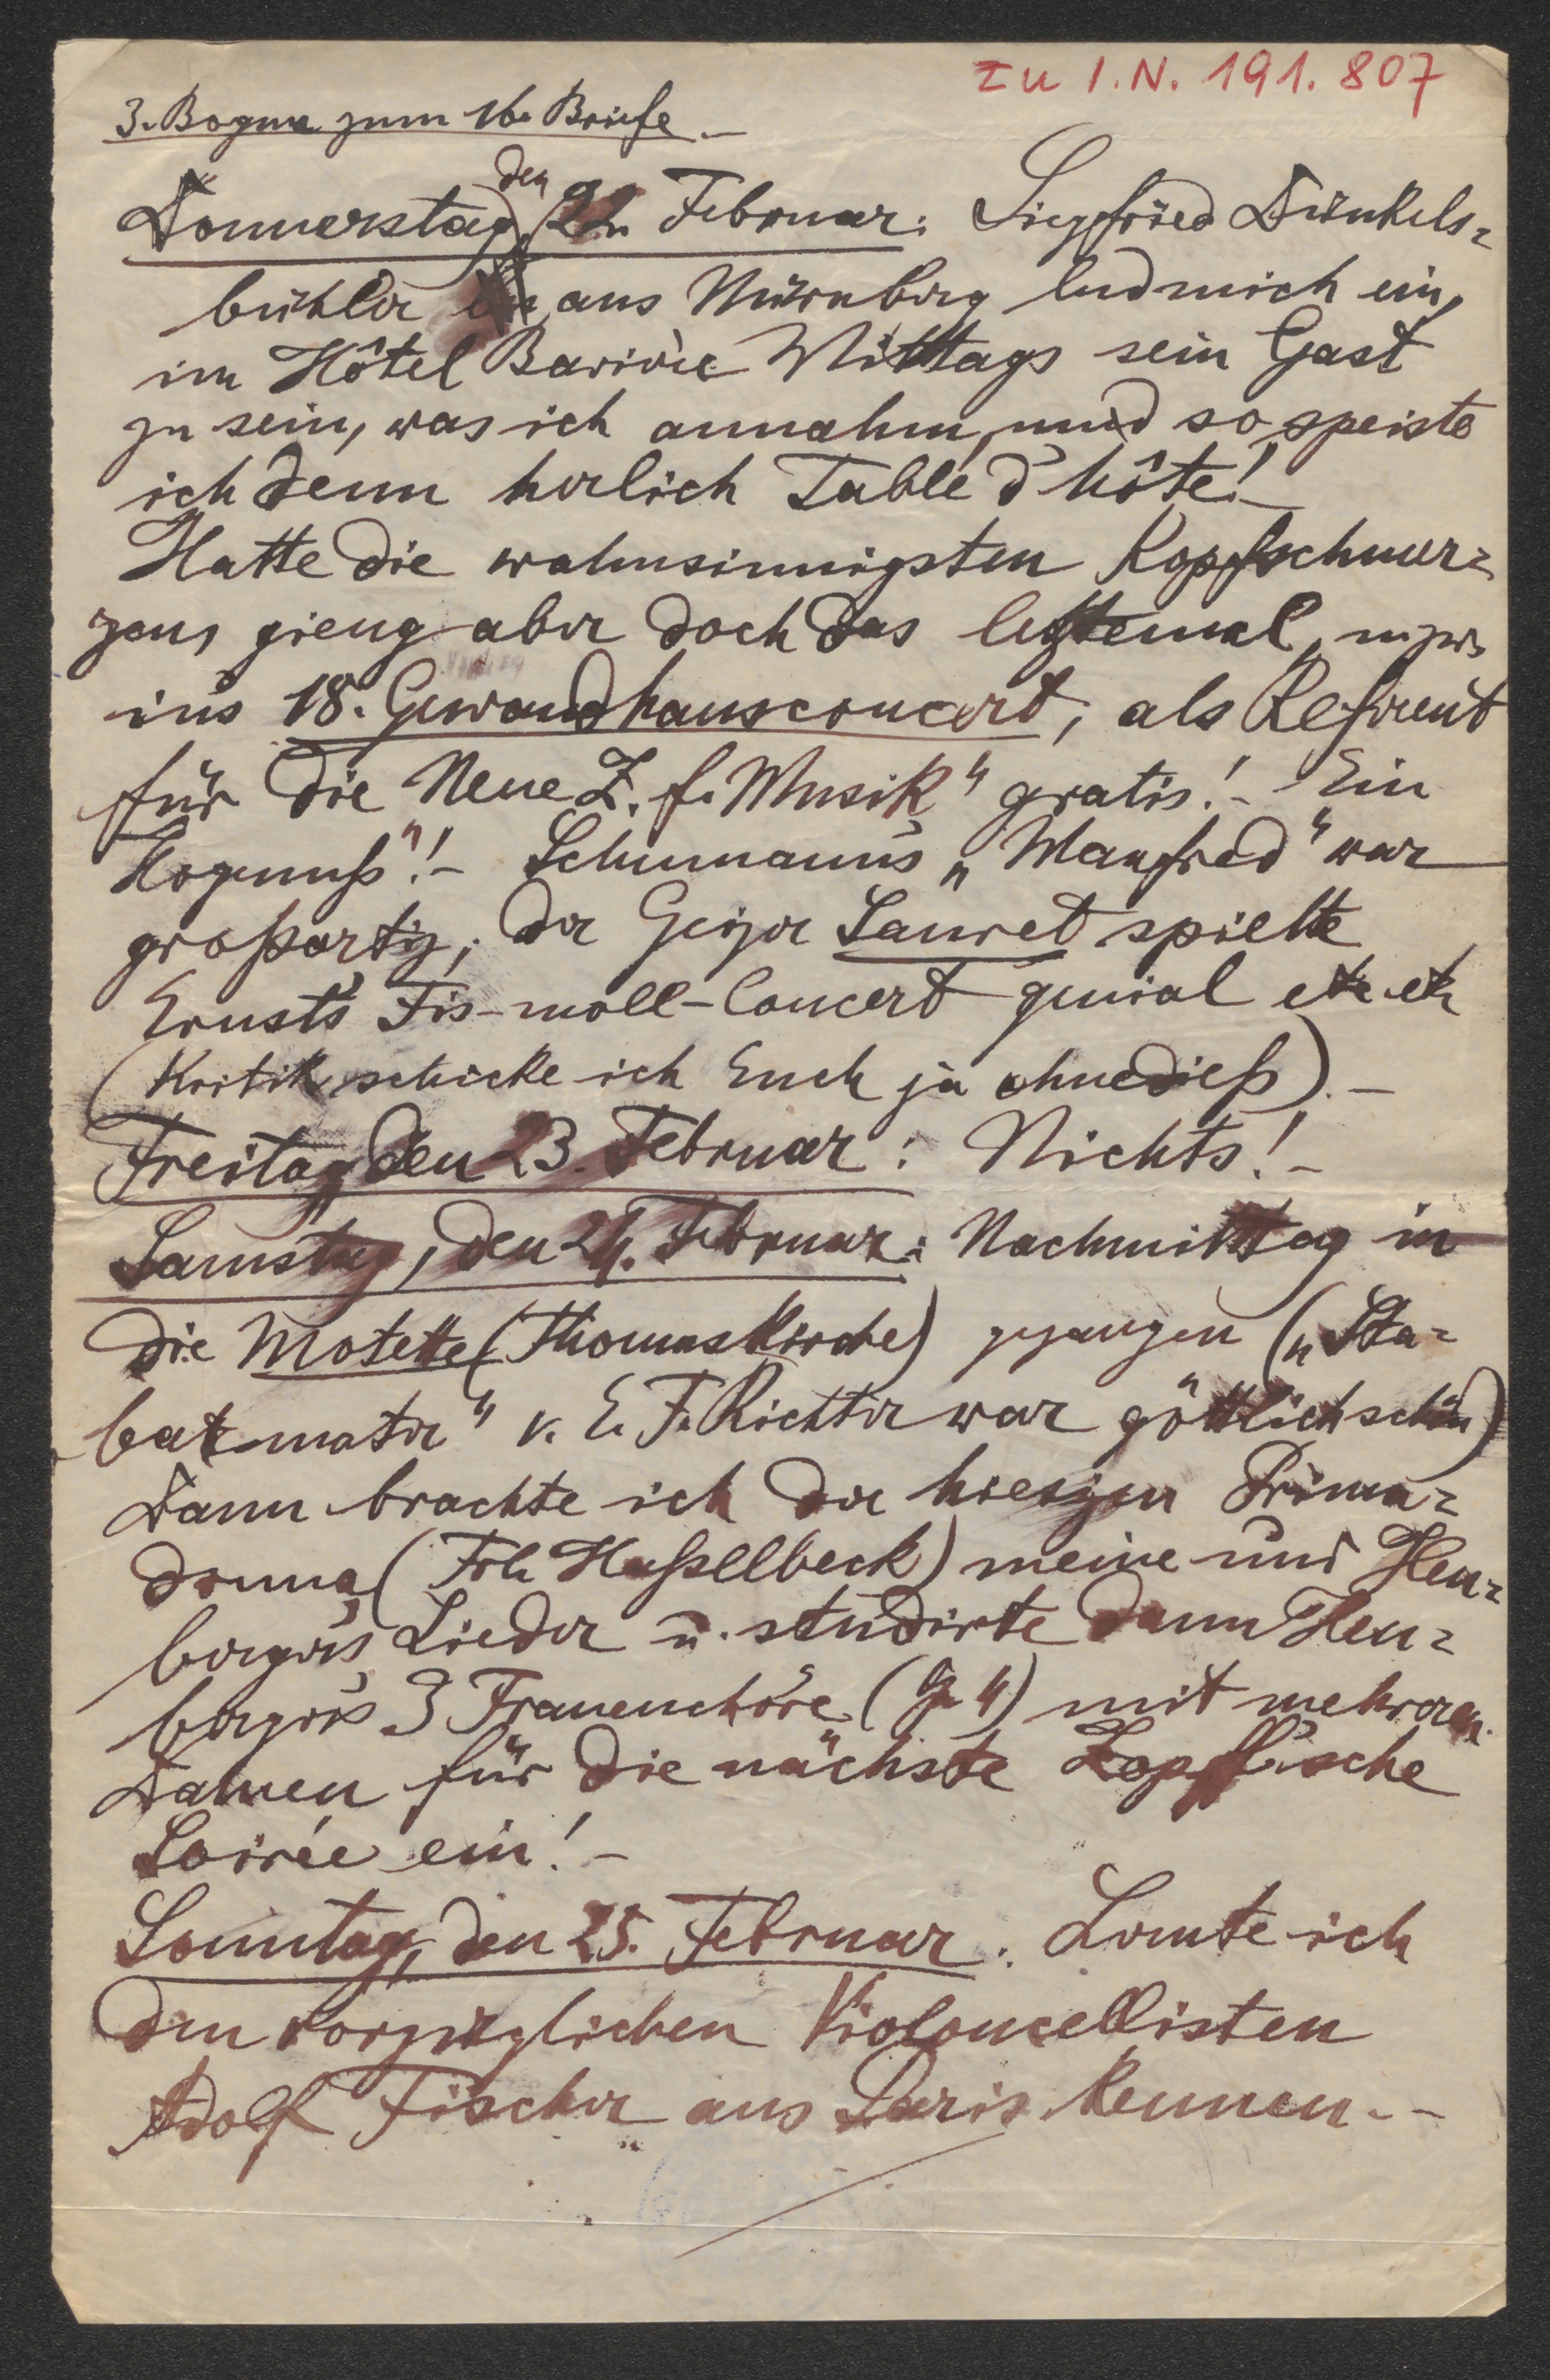 zu I.N. 191.807
3. Bogen zum 16. Briefe.–
Donnerstag, den 22. Februar: Siegfried Dünkels-
bühler aus Nürnberg lud mich ein,
im Hôtel Bavière Mittags sein Gast
zu sein, was ich annahm, und so speiste
ich denn herlich Table d'hôte!–
Hatte die wahnsinnigsten Kopfschmer-
zen, gieng aber doch das letztemal, u. zw.
in's 18. Gewandhausconcert, als Referent
für die Neue Z. f. Musik" gratis!– Ein
Hogenuß"!– Schumann's „Manfred" war
großartig; der Geiger Sauret spielte
Ernst's Fis-moll-Concert genial etc etc
(Kritik schicke ich Euch ja ohnedieß).–
Freitag den 23. Februar: Nichts!–
Samstag, den 24. Februar: Nachmittag in
die Motette (Thomaskirche) gegangen („Sta-
bat mater" v. E. F. Richter war göttlich schön)
Dann brachte ich der hiesigen Prima-
donna (Frl. Haßelbeck) meine und Heu-
berger's Lieder u. studirte dann Heu-
berger's 3 Frauenchöre (à 4) mit mehreren
Damen für die nächste Zopff'sche
Soirée ein!–
Sonntag, den 25. Februar. Lernte ich
den vorzüglichen Violoncellisten
Adolf Fischer aus Paris kennen.–